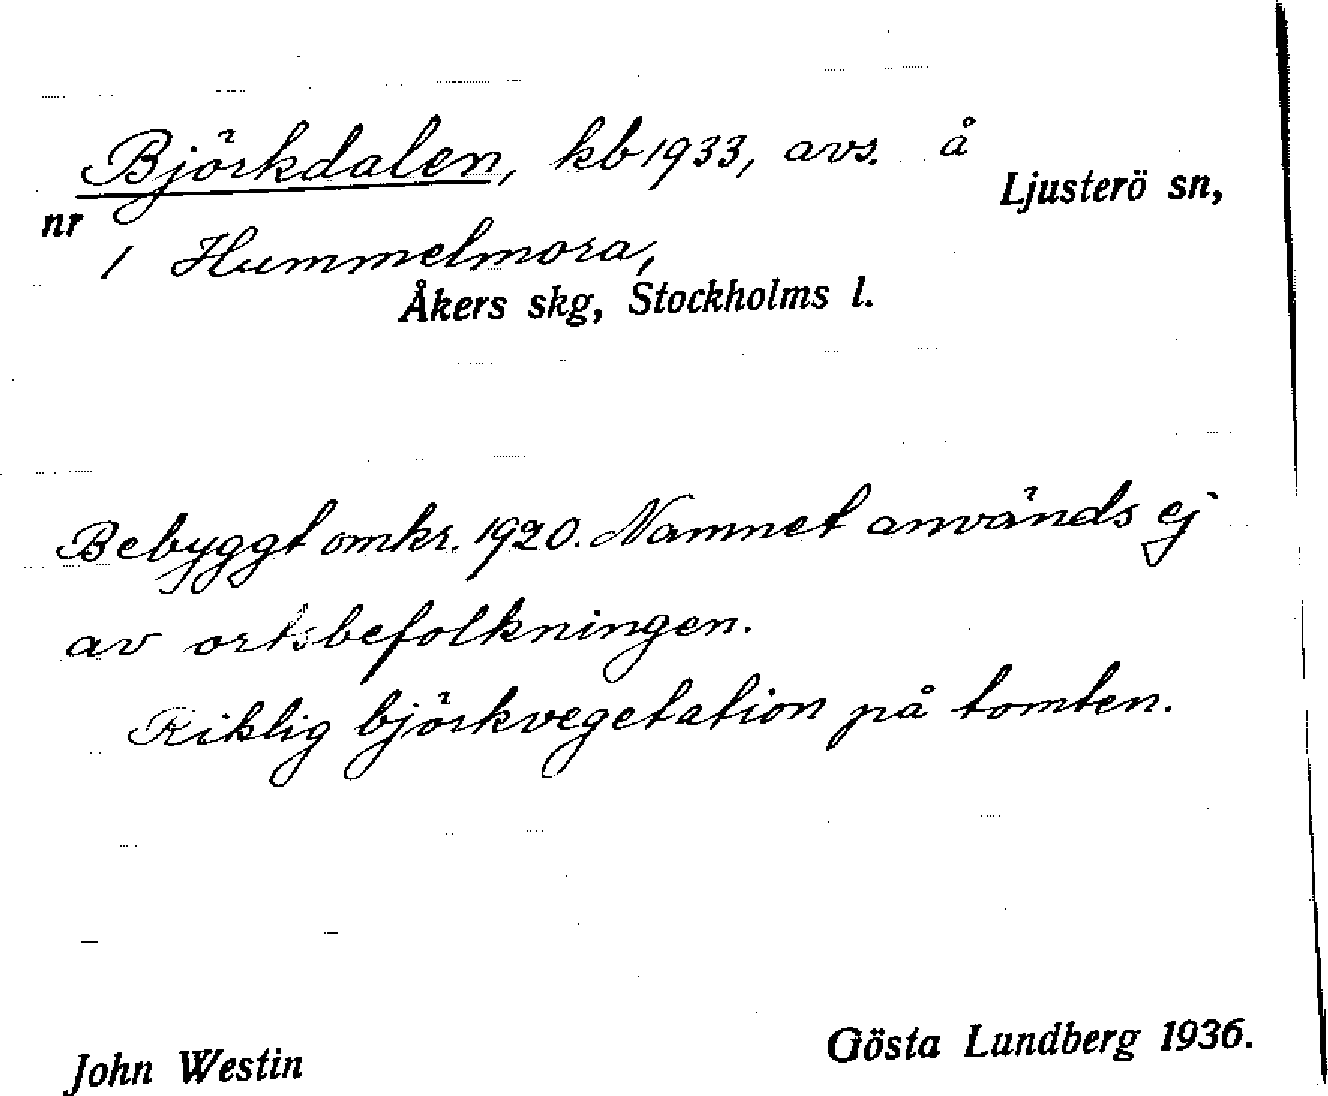 Björkdalen, kb 1933, avs. å
Ljusterö sn,
nr 1 Hummelmora,
Åkers skg, Stockholms l.
Bebyggt omkr. 1920. Namnet används ej
av ortsbefolkningen.
Riklig björkvegetation på tomten.
John Westin
Gösta Lundberg 1936.